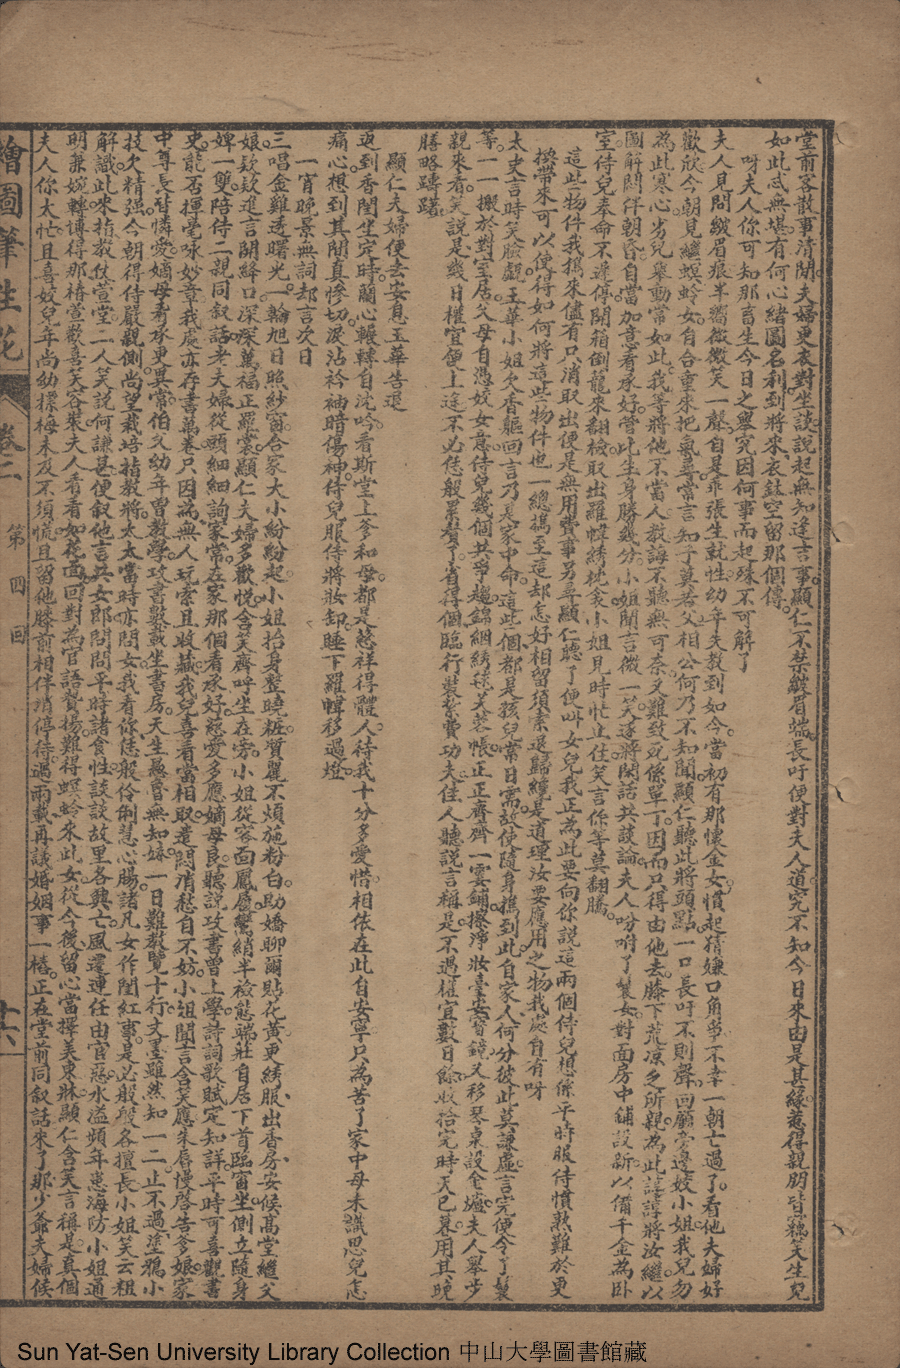 堂前客散事清閒夫婦更衣對坐談說起無知逆言事顯仁不禁皺眉端長吁便對夫人道究不知今日來由是甚緣惹得親朋皆竊笑生兒
如此忒無堪有何心緒圖名利到將來衣鉢空留那個傳
呀夫人你可知那畜生今日之舉究因何事而起殊不可解了
夫人見問皺眉痕半嚮微微笑一聲自是乖張生就性幼年失教到如今當初有那懷金女慣起猜嫌口角爭不幸一朝亡過了看他夫婦好
歡欣今朝見繼螟蛉女自合重來把氣尋常言知子莫若父相公何乃不知聞顯仁聽此將頭點一口長吁不則聲回顧旁邊姣小姐我兒勿
為此寒心劣兒舉動常如此我等將他不當人教誨不聽無可奈又難致死係單丁因而只得由他去膝下荒凉乏所親為此諄諄將汝繼以
圖解悶伴朝昏自當加意看承好管此生身勝幾分小姐聞言微一笑遂將閑話共談論夫人吩咐了鬟女對面房中鋪設新以備千金為卧
室侍兒奉命不遲停開箱倒籠來翻檢取出羅幃綉枕衾小姐見時忙止住笑言你等莫翻騰
這些物件我攜來儘有只消取出便是無用費事另尋顯仁聽了便叫女兒我正為此要向你說這兩個侍兒想係平時服侍慣熟難於更
換帶來可以便得如何將這些物件也一總攜至這却怎好相留須索還歸纔是道理汝要應用之物我處自有呀
太史言時笑臉䚔玉華小姐欠香軀回言乃是家中命這些個都是孩兒常日需故使隨身攜到此自家人何分彼此莫謙虛言完便令了鬟
等一一搬於對室居父母自憑姣女意侍兒幾個共爭趨錦綑綉毯芙蓉帳正正齊齊一霎鋪擦淨妝臺安寶鏡又移琴桌設金爐夫人舉步
親來看笑說是幾日權宜便上途不必恁般累贅了省得個臨行裝紮費功夫佳人聽說言稱是不過權宜數日餘收拾完時天已暮用其晚
膳略躊躇
顯仁夫婦便去安息玉華告退
返到香閨坐定時蘭心輾轉自沈吟看斯堂上爹和母都是慈祥得體人待我十分多愛惜相依在此自安寧只為苦了家中母未識思兒怎
痛心想到其間真慘切淚沾衿袖暗傷神侍兒服侍將妝卸睡下羅幃移過燈
一宵晚景無詞却言次日
三唱金雞透曙光一輪旭日照紗窗合家大小紛紛起小姐抬身整曉粧質麗不煩施粉白助嬌聊爾貼花黃更綉服出香房安候高堂繼父
娘欵欵進言開絳口深深萬福正羅裳顯仁夫婦多歡悅含笑齊呼坐在旁小姐從容面鳳履鸞綃半襝態端莊自居下首臨窗坐側立隨身
婢一雙陪侍二親同叙話老夫婦從頭細細詢家常在家那個看承好慈愛多應嫡母良聽說攻書曾上學詩詞歌賦定知詳平時可喜觀書
史能否揮毫咏妙章我處亦存書萬卷只因為無人玩索且收藏我兒喜看當相取還悶消愁自不妨小姐聞言含笑應朱唇慢啓告爹娘家
中尊長皆憐愛嫡母看承更異常伯父幼年曾教學攻書數載坐書房天生愚魯無知妹一日難教覽十行文墨雖然知一二止不過塗鴉小
技欠精强今朝得侍嚴親側尚望栽培指教將太太當時亦問女我看你恁般伶俐慧心腸諸凡女作閨紅事是必般般各擅長小姐笑云粗
解識此來指教仗萱堂二人笑說何謙甚便叙他言共女郎閒問平時諸食性談談故里各興亡風還連任由官惡水溢頻年患海防小姐通
明兼婉轉博得那椿萱歡喜笑容裝夫人看看如花面回對為官語贊揚難得螟蛉來此女從今後留心當擇美東牀顯仁含笑言稱是真個
夫人你太忙且喜姣兒年尚幼摽梅未及不須慌且留他膝前相伴請停待過兩載再議婚姻事一樁正在堂前同叙話來了那少爺夫婦候
繪圖筆生花 卷二 第四回 十六
Sun Yat-Sen University Library Collection 中山大學圖書館藏